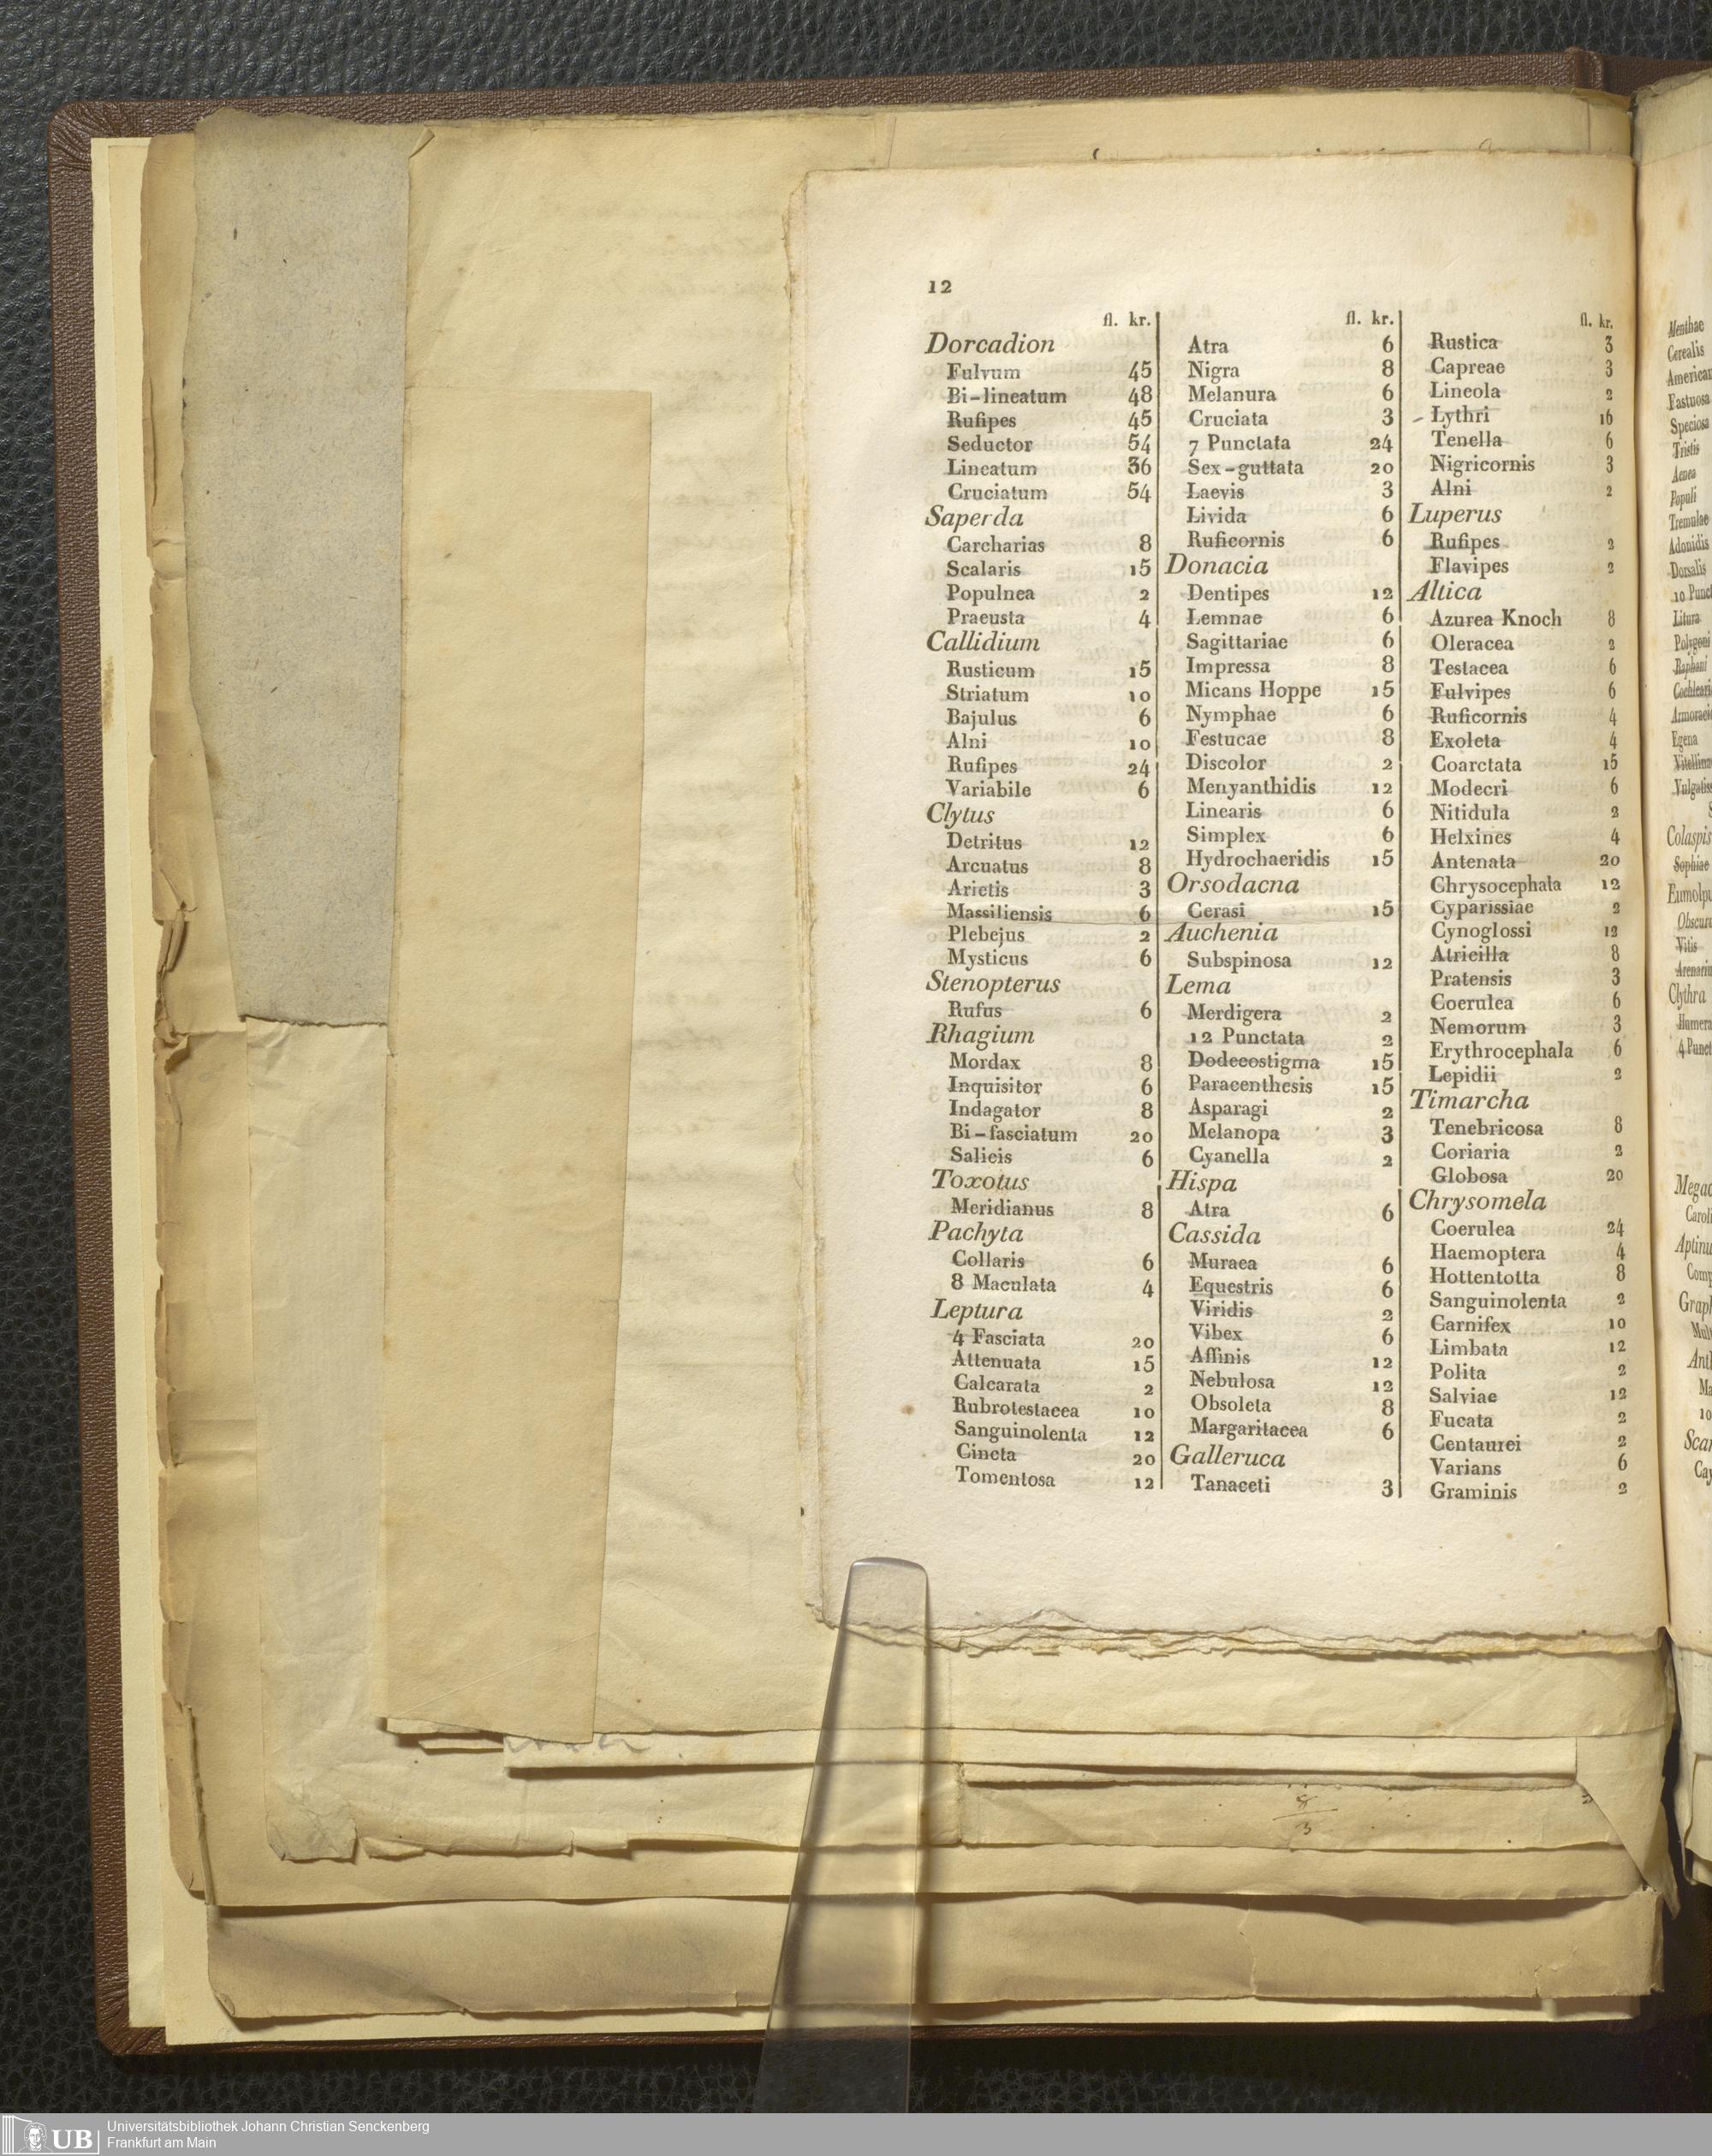 12
fl. kr.
Dorcadion
Fulvum 45
Bi-lineatum 48
Rufipes 45
Seductor 54
Lineatum 36
Cruciatum 54
Saperda
Carcharias 8
Scalaris 15
Populnea 2
Praeusta 4
Callidium
Rusticum 15
Striatum 10
Bajulus 6
Alni 10
Rufipes 24
Variabile 6
Clytus
Detritus 12
Arcuatus 8
Arietis 3
Massiliensis 6
Plebejus 2
Mysticus 6
Stenopterus
Rufus 6
Rhagium
Mordax 8
Inquisitor 6
Indagator 8
Bi-fasciatum 20
Salicis 6
Toxotus
Meridianus 8
Pachyta
Collaris 6
8 Maculata 4
Leptura
4 Fasciata 20
Attenuata 15
Calcarata 2
Rubrotestacea 10
Sanguinolenta 12
Cincta 20
Tomentosa 12
fl. kr.
Atra 6
Nigra 8
Melanura 6
Cruciata 3
7 Punctata 24
Sex-guttata 20
Laevis 3
Livida 6
Ruficornis 6
Donacia
Dentipes 12
Lemnae 6
Sagittariae 6
Impressa 8
Micans Hoppe 15
Nymphae 6
Festucae 8
Discolor 2
Menyanthidis 12
Linearis 6
Simplex 6
Hydrochaeridis 15
Orsodacna
Cerasi 15
Auchenia
Subspinosa 12
Lema
Merdigera 2
12 Punctata 2
Dodecostigma 15
Paracenthesis 15
Asparagi 2
Melanopa 3
Cyanella 2
Hispa
Atra 6
Cassida
Muraea 6
Equestris 6
Viridis 2
Vibex 6
Affinis 12
Nebulosa 12
Obsoleta 8
Margaritacea 6
Galleruca
Tanaceti 3
fl. kr.
Rustica 3
Capreae 3
Lineola 2
Lythri 16
Tenella 6
Nigricornis 3
Alni 2
Luperus
Rufipes 2
Flavipes 2
Altica
Azurea Knoch 8
Oleracea 2
Testacea 6
Fulvipes 6
Ruficornis 4
Exoleta 4
Coarctata 15
Modecri 6
Nitidula 2
Helxines 4
Antenata 20
Chrysocephala 12
Cyparissiae 2
Cynoglossi 12
Atricilla 8
Pratensis 3
Coerulea 6
Nemorum 3
Erythrocephala 6
Lepidii 2
Timarcha
Tenebricosa 8
Coriaria 2
Globosa 20
Chrysomela
Coerulea 24
Haemoptera 4
Hottentotta 8
Sanguinolenta 2
Carnifex 10
Limbata 12
Polita 2
Salviae 12
Fucata 2
Centaurei 2
Varians 6
Graminis 2
Menthae
Cerealis
Fastuosa
Speciosa
Tristis
Aenea
Populi
Tremulae
Adonidis
Dorsalis
10 Punct
Litura
Polygoni
Raphani
Egena
Colaspis
Sophiae
Vitis
Clythra
4 Punct
UB
Universitätsbibliothek Johann Christian Senckenberg
Frankfurt am Main